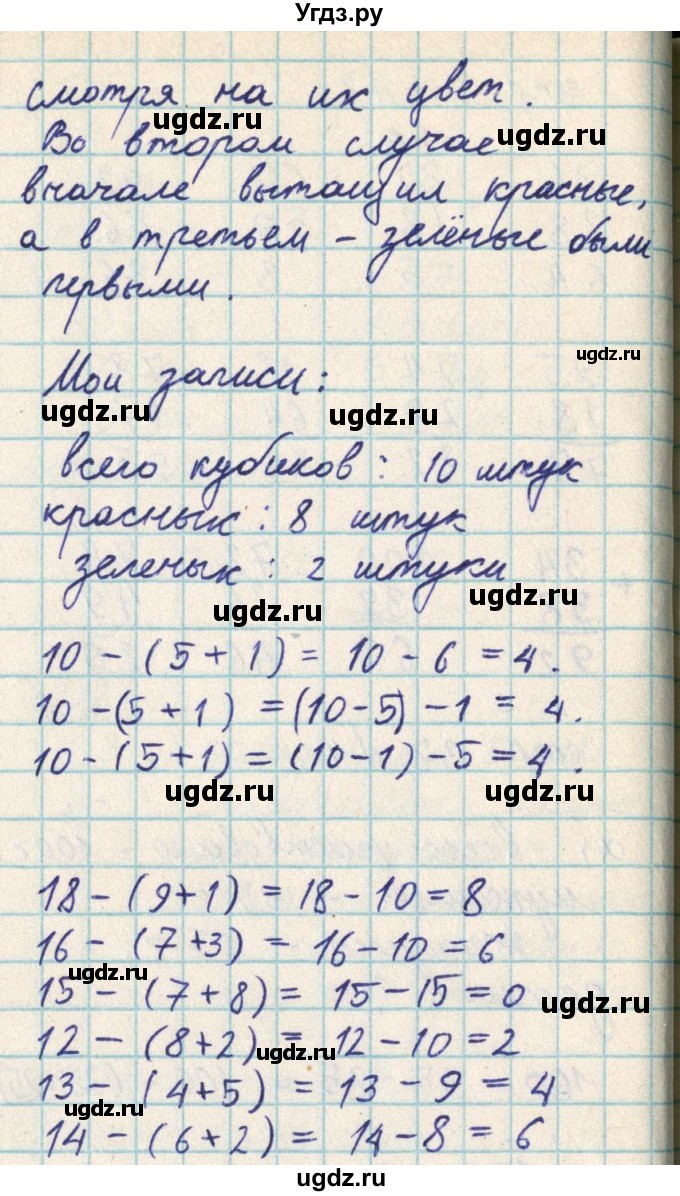 Угдз.ру
смотря на их цвет.
ugdz.ru
ugdz.ru
Во втором случае
вначале вытащил красные,
а в третьем – зелёные были
первыми.
ugdz.ru
Мои записи:
ugdz.ru
ugdz.ru
всего кубиков: 10 штук
красных: 8 штук
зеленых: 2 штуки
ugdz.ru
ugdz.ru
10 - (5 + 1) = 10 - 6 = 4.
10 - (5 + 1) = (10 - 5) - 1 = 4.
10 - (5 + 1) = (10 - 1) - 5 = 4.
ugdz.ru
ugdz.ru
18 - (9 + 1) = 18 - 10 = 8
16 - (7 + 3) = 16 - 10 = 6
ugdz.ru
15 - (7 + 8) = 15 - 15 = 0
ugdz.ru
12 - (8 + 2) = 12 - 10 = 2
ugdz.ru
13 - (4 + 5) = 13 - 9 = 4
ugdz.ru
14 - (6 + 2) = 14 - 8 = 6
ugdz.ru